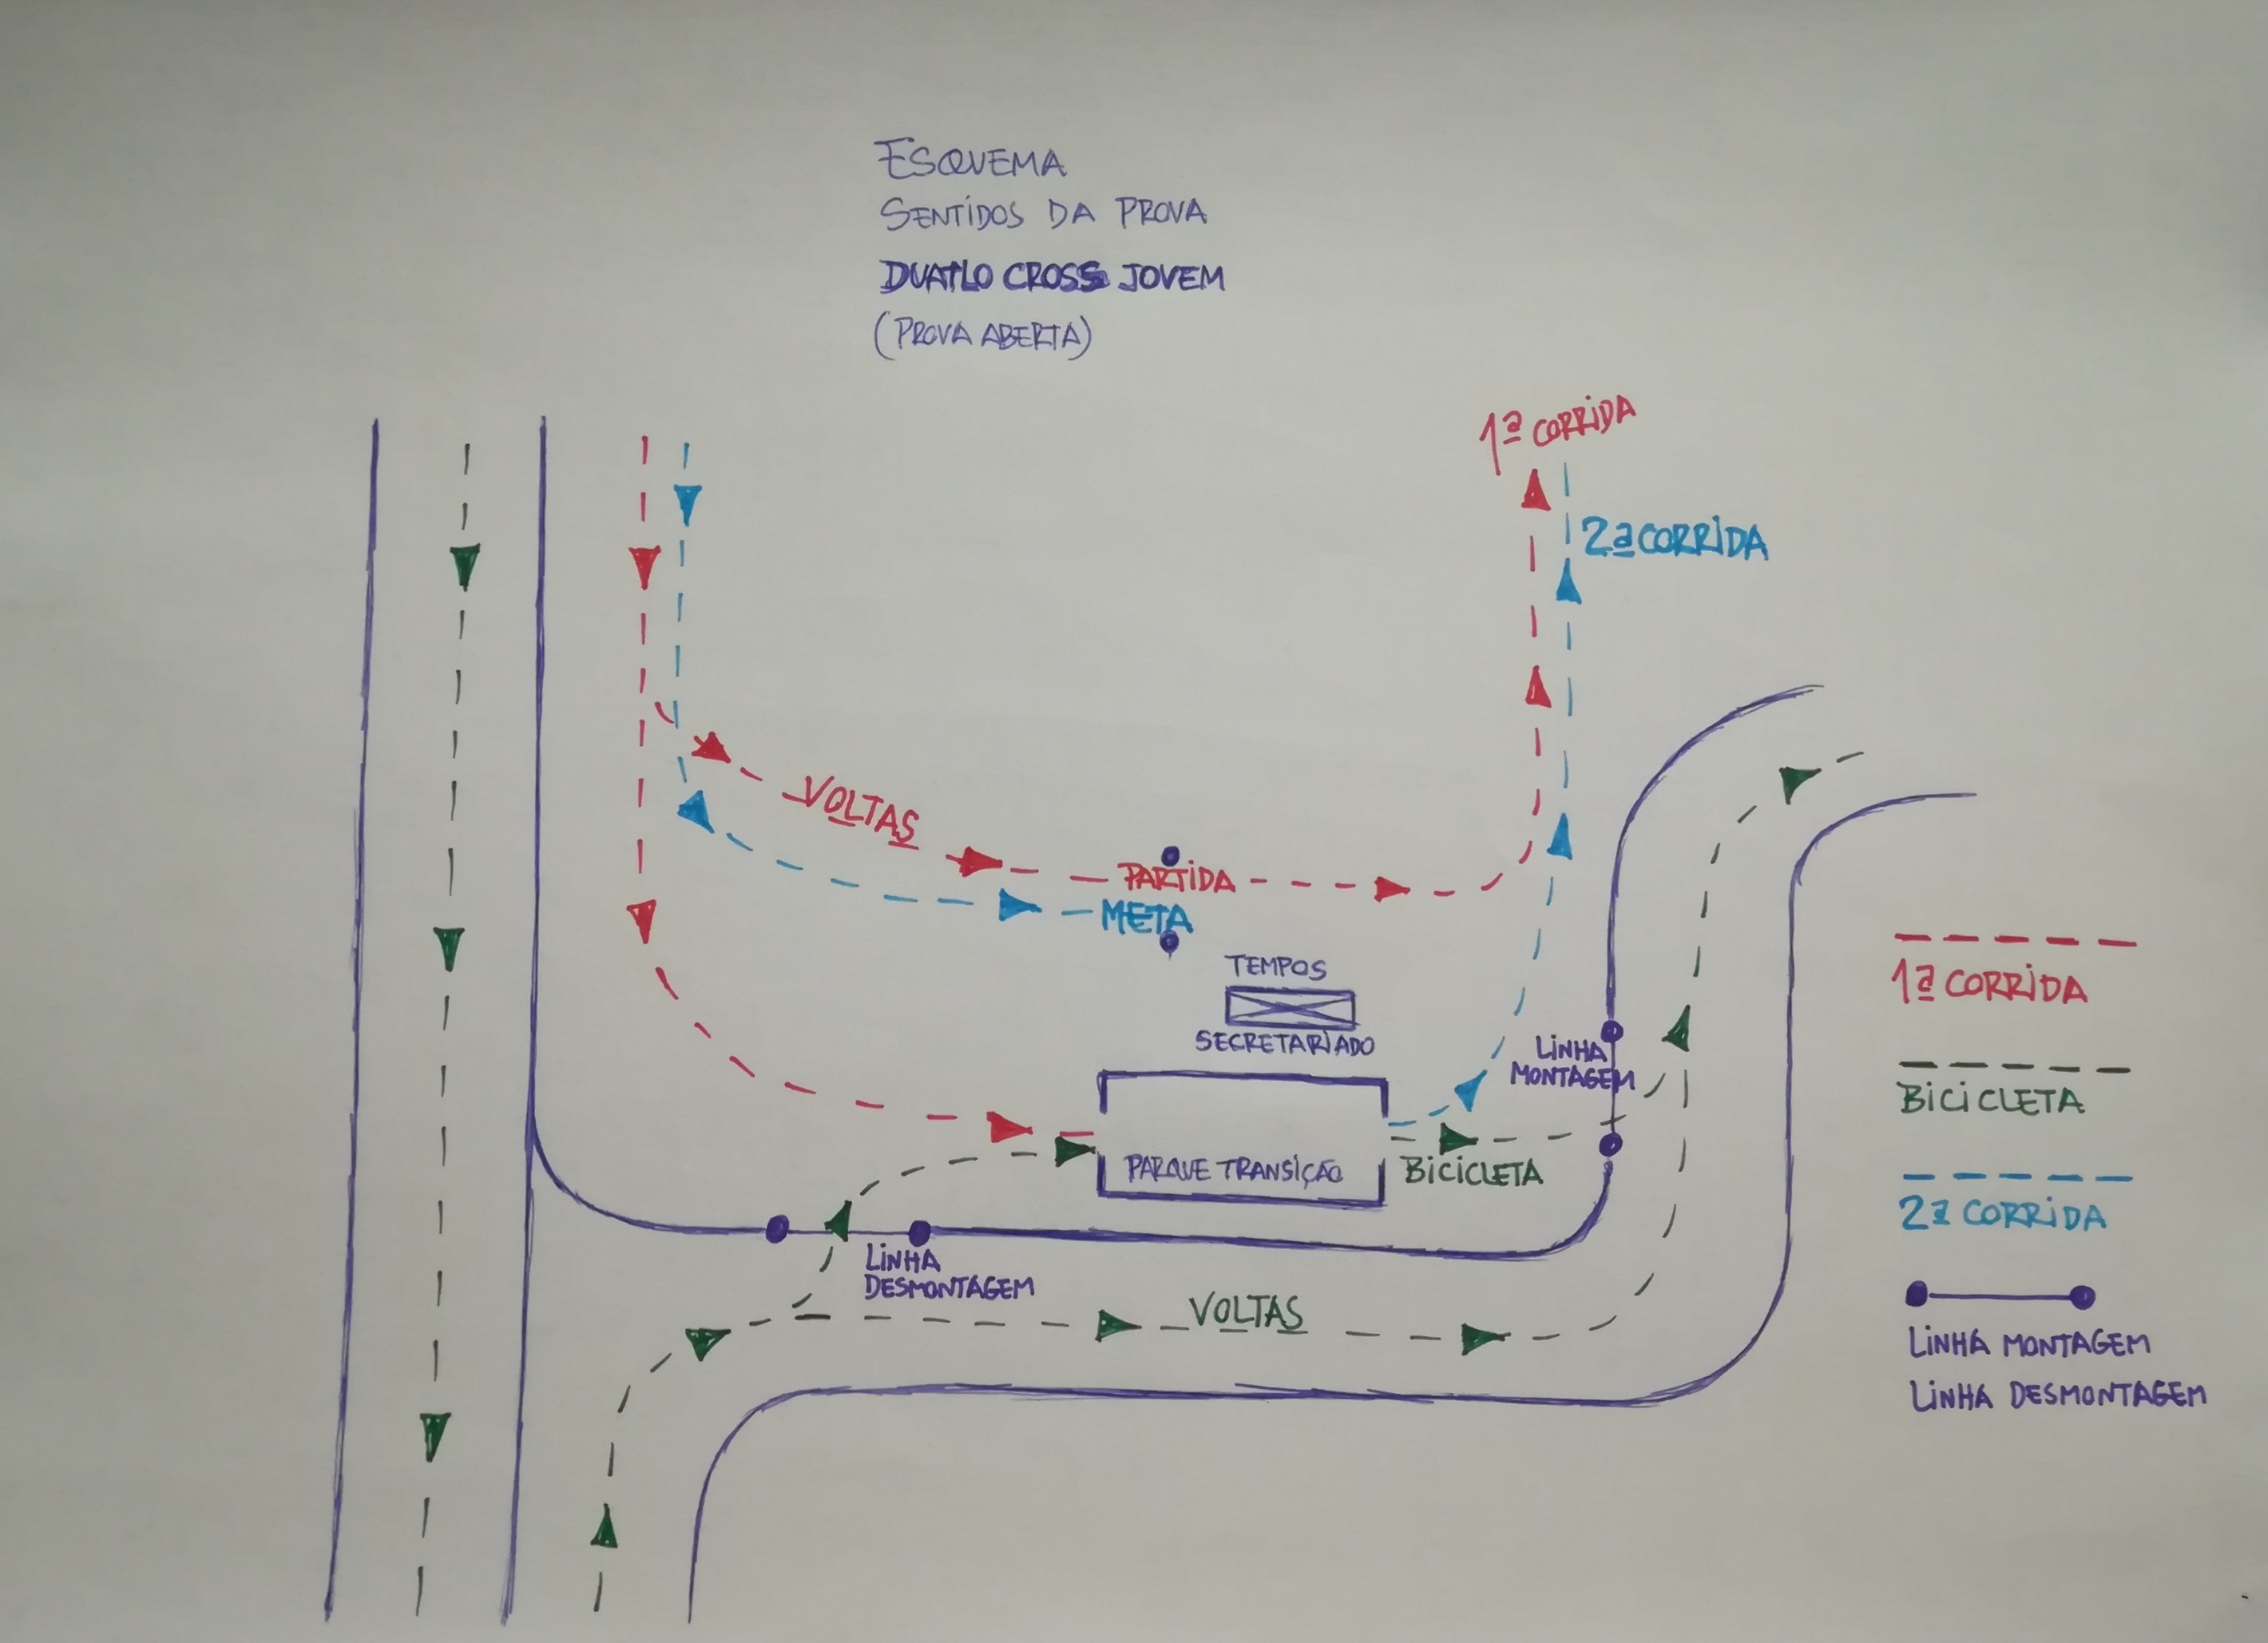 ESQUEMA
SENTIDOS DA PROVA
DUATLO CROSS JOVEM
(PROVA ABERTA)
1ª CORRIDA
2ª CORRIDA
VOLTAS
PARTIDA
META
TEMPOS
SECRETARIADO
LINHA
MONTAGEM
PARQUE TRANSIÇÃO
BICICLETA
LINHA
DESMONTAGEM
VOLTAS
1ª CORRIDA
BICICLETA
2ª CORRIDA
LINHA MONTAGEM
LINHA DESMONTAGEM